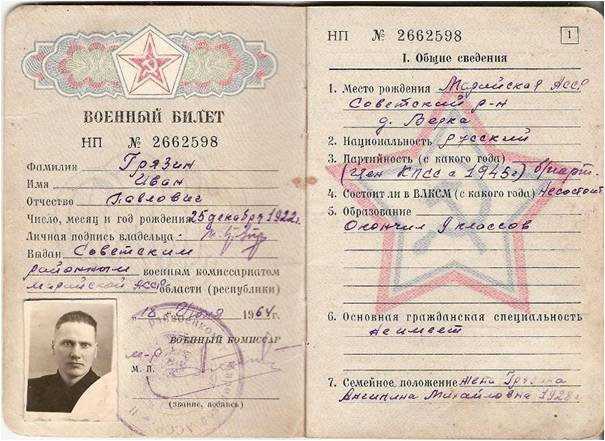 ВОЕННЫЙ БИЛЕТ
НП № 2662598
Фамилия Грязин
Имя Иван
Отчество Павлович
Число, месяц и год рождения 25 декабря 1922 г.
Личная подпись владельца
Выдан Советским
районным военным комиссариатом
Марийской АССР области (республики)
18 июня 1964 г.
ВОЕННЫЙ КОМИССАР
М. П.
(звание, подпись)
НП № 2662598
1
I. Общие сведения
1. Место рождения Марийская АССР
Советский р-н
д.
2. Национальность русский
3. Партийность (с какого года)
(Член КПСС с 1945 г)
4. Состоит ли в ВЛКСМ (с какого года) не состоит
5. Образование
Окончил классов
6. Основная гражданская специальность
не имеет
7. Семейное положение жена Грязина
Михайловна 1928 г.